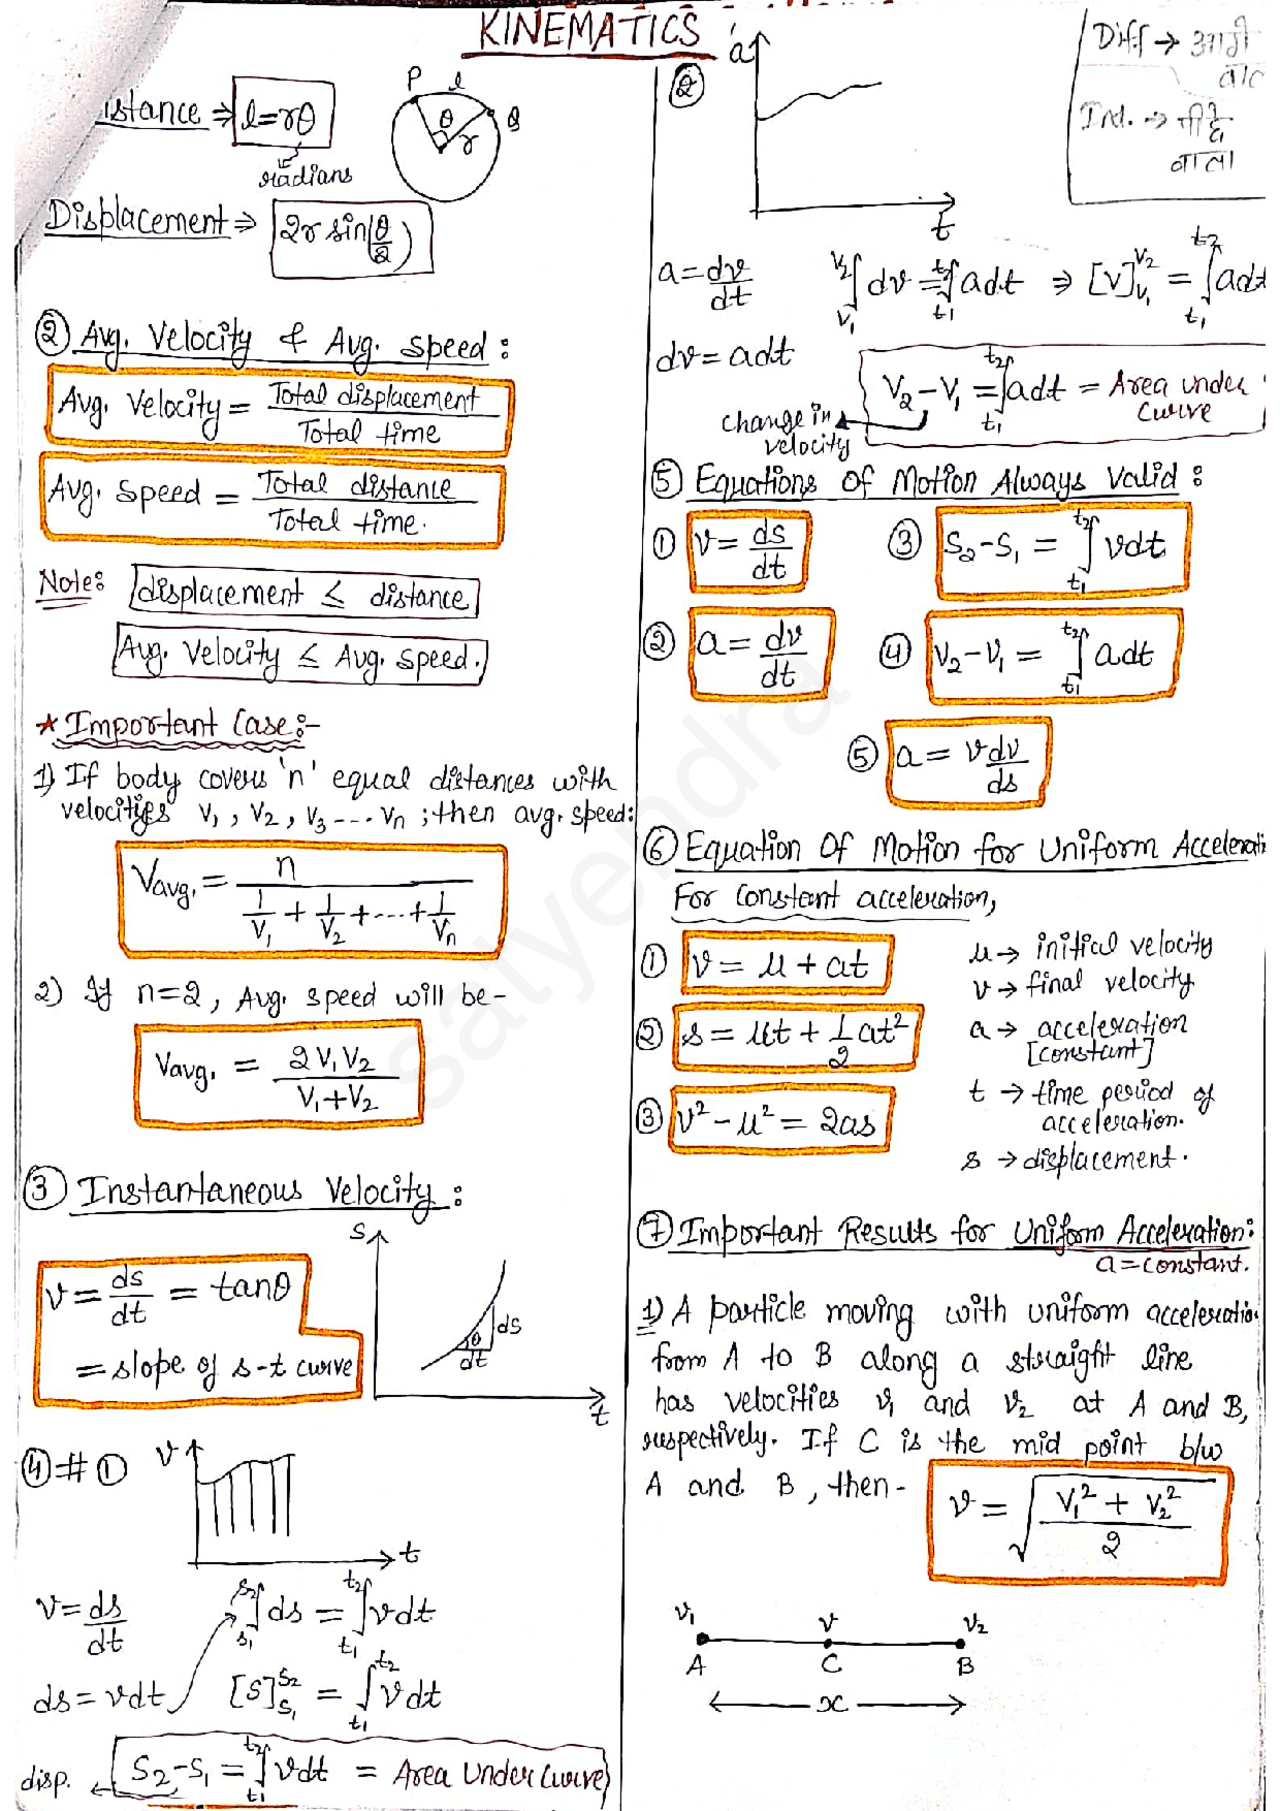 KINEMATICS
istance ⇒ l=rθ
radians
P l Q
θ r
Displacement ⇒ 2r sin(θ/2)
② Avg. Velocity & Avg. speed :
Avg. Velocity = Total displacement / Total time
Avg. Speed = Total distance / Total time.
Note: displacement ≤ distance
Avg. Velocity ≤ Avg. speed.
★ Important Case:-
1) If body covers 'n' equal distances with
velocities V₁, V₂, V₃ --- Vn ; then avg. speed:
Vavg. = n / (1/V₁ + 1/V₂ + ... + 1/Vn)
2) If n=2, Avg. speed will be -
Vavg. = 2V₁V₂ / (V₁+V₂)
③ Instantaneous Velocity :
v = ds/dt = tanθ
= slope of s-t curve
s
θ ds
dt
t
④ # ①
v
t
v = ds/dt
∫s₁^s₂ ds = ∫t₁^t₂ vdt
ds = vdt
[S]s₁^s₂ = ∫t₁^t₂ vdt
disp. S₂-S₁ = ∫t₁^t₂ vdt = Area Under Curve
② a
t
Diff → आगे
Int. → पीछे
वाला
a = dv/dt
∫V₁^V₂ dv = ∫t₁^t₂ adt ⇒ [V]V₁^V₂ = ∫t₁^t₂ adt
dv = adt
V₂-V₁ = ∫t₁^t₂ adt = Area under Curve
change in velocity
⑤ Equations Of Motion Always Valid :
① v = ds/dt
③ S₂-S₁ = ∫t₁^t₂ vdt
② a = dv/dt
④ V₂-V₁ = ∫t₁^t₂ adt
⑤ a = vdv/ds
⑥ Equation Of Motion for Uniform Accelerati
For constant acceleration,
① v = u + at
② s = ut + 1/2 at²
③ v² - u² = 2as
u → initial velocity
v → final velocity
a → acceleration
[constant]
t → time period of
acceleration.
s → displacement.
⑦ Important Results for Uniform Acceleration:
a = constant.
1) A particle moving with uniform acceleratio
from A to B along a straight line
has velocities v₁ and v₂ at A and B,
respectively. If C is the mid point b/w
A and B, then -
v = √((V₁² + V₂²)/2)
V₁ V V₂
A C B
x
satyendra